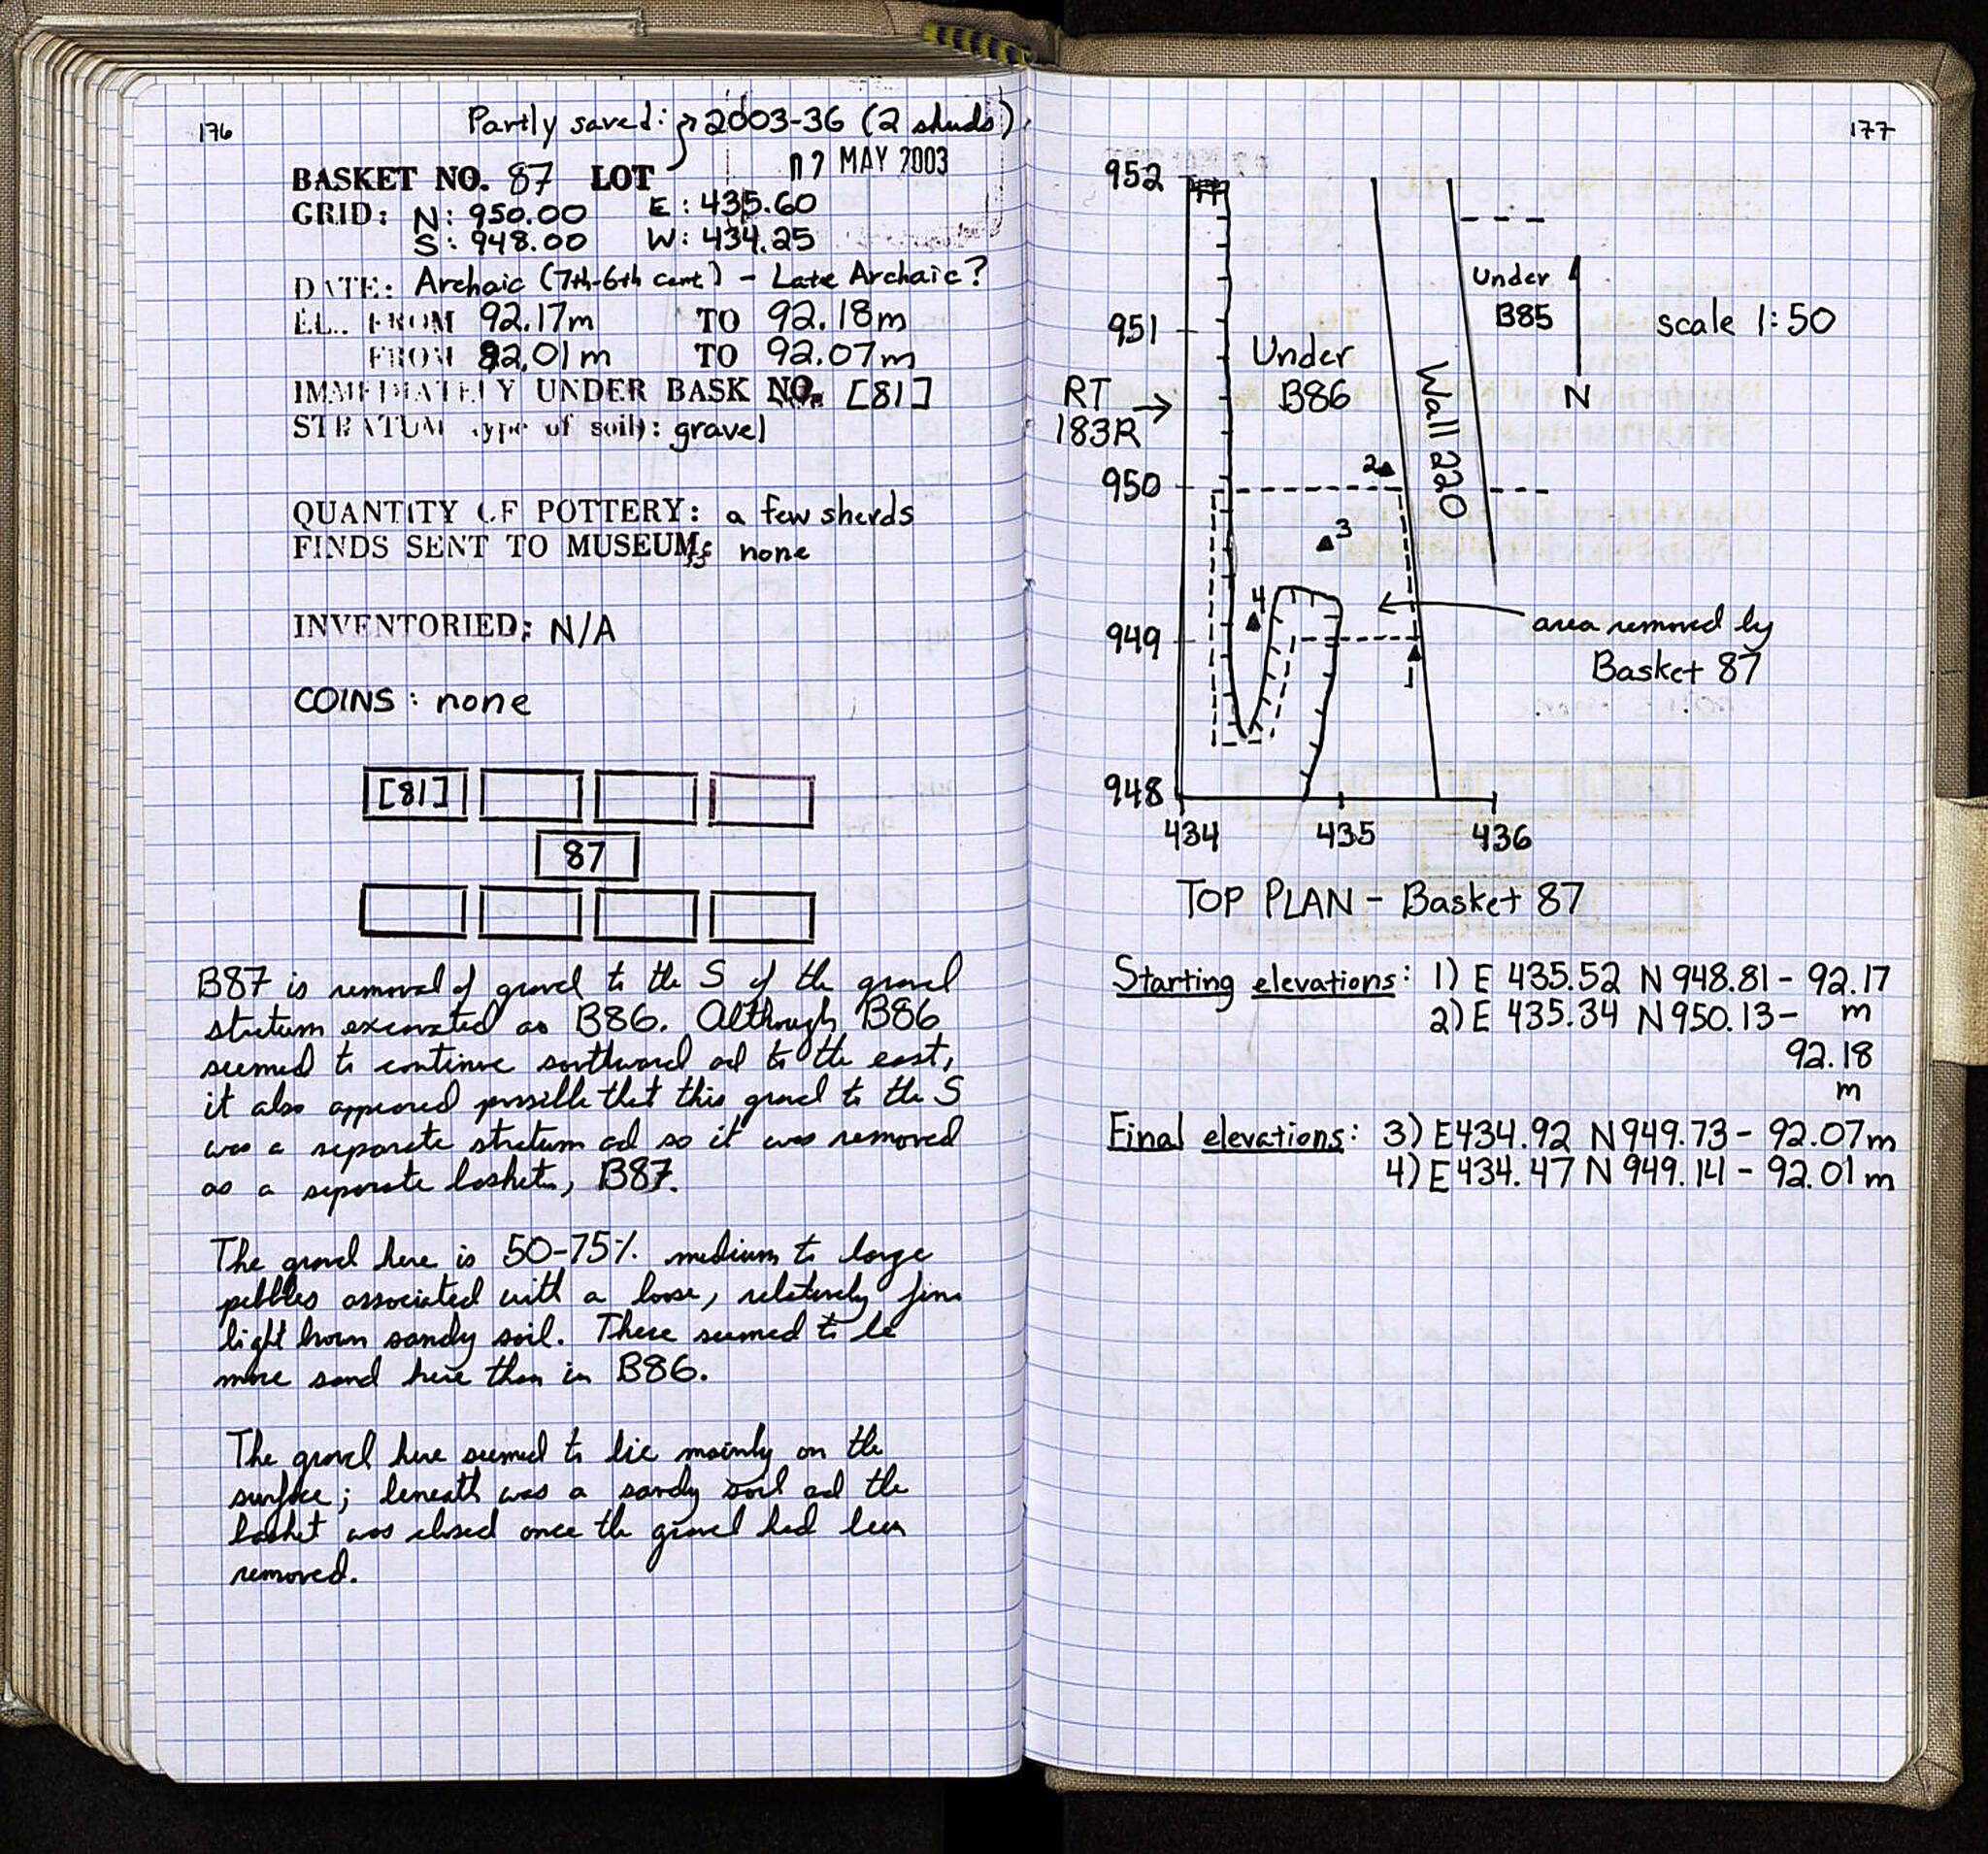 176
Partly saved: 2003-36 (2 sherds)
07 MAY 2003
BASKET NO. 87 LOT
GRID: N: 950.00 E: 435.60
S: 948.00 W: 434.25
DATE: Archaic (7th-6th cent.) - Late Archaic?
EL. FROM 92.17m TO 92.18m
FROM 92.01m TO 92.07m
IMMEDIATELY UNDER BASK NO. [81]
STRATUM (type of soil): gravel
QUANTITY OF POTTERY: a few sherds
FINDS SENT TO MUSEUM: none
INVENTORIED: N/A
COINS: none
[81]
87
B87 is removal of gravel to the S of the gravel
stratum excavated as B86. Although B86
seemed to continue southward and to the east,
it also appeared possible that this gravel to the S
was a separate stratum and so it was removed
as a separate basket, B87.
The gravel here is 50-75% medium to large
pebbles associated with a loose, relatively fine
light brown sandy soil. There seemed to be
more sand here than in B86.
The gravel here seemed to lie mainly on the
surface; beneath was a sandy soil and the
basket was closed once the gravel had been
removed.
177
952
951
950
949
948
434 435 436
RT
183R
Under
B86
Wall 220
Under
B85
N
scale 1:50
2
3
4
area removed by
Basket 87
TOP PLAN - Basket 87
Starting elevations: 1) E 435.52 N 948.81 - 92.17
m
2) E 435.34 N 950.13 -
92.18
m
Final elevations: 3) E 434.92 N 949.73 - 92.07m
4) E 434.47 N 949.14 - 92.01m